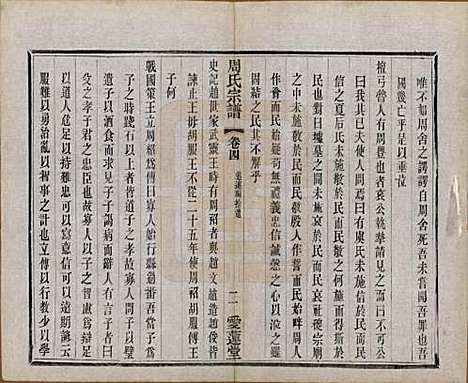 唯不如周舍之諤諤自周舍死吾未嘗聞吾罪也吾
國幾亡乎是以垂泣
檀弓魯人有周豐也者哀公執摯請見之而曰不可公
曰我其已夫使人問焉曰有虞氏未施信於民而民
信之夏后氏未施敬於民而民敬之何施而得斯於
民也對曰墟墓之間未施哀於民而民哀社稷宗廟
之中未施敬於民而民敬殷人作誓而民始畔周人
作會而民始疑苟無禮義忠信誠愨之心以涖之雖
固結之民其不解乎
周氏宗譜
卷四
二
愛蓮堂
史記趙世家武靈王時有周袑者與趙文趙造趙俊皆
諫止王毋胡服王不從二十五年使周袑胡服傅王
子何
戰國策王立周袑為傅曰寡人始行縣過番吾當子為
子之時踐石以上者皆道子之孝故寡人問子以璧
遺子以酒食而求見子子謁病而辭人有言子者曰
父之孝子君之忠臣也故寡人以子之智慮為辨足
以道人危足以持難忠可以寫意信可以遠期詩云
服難以勇治亂以智事之計也立傅以行教少以學